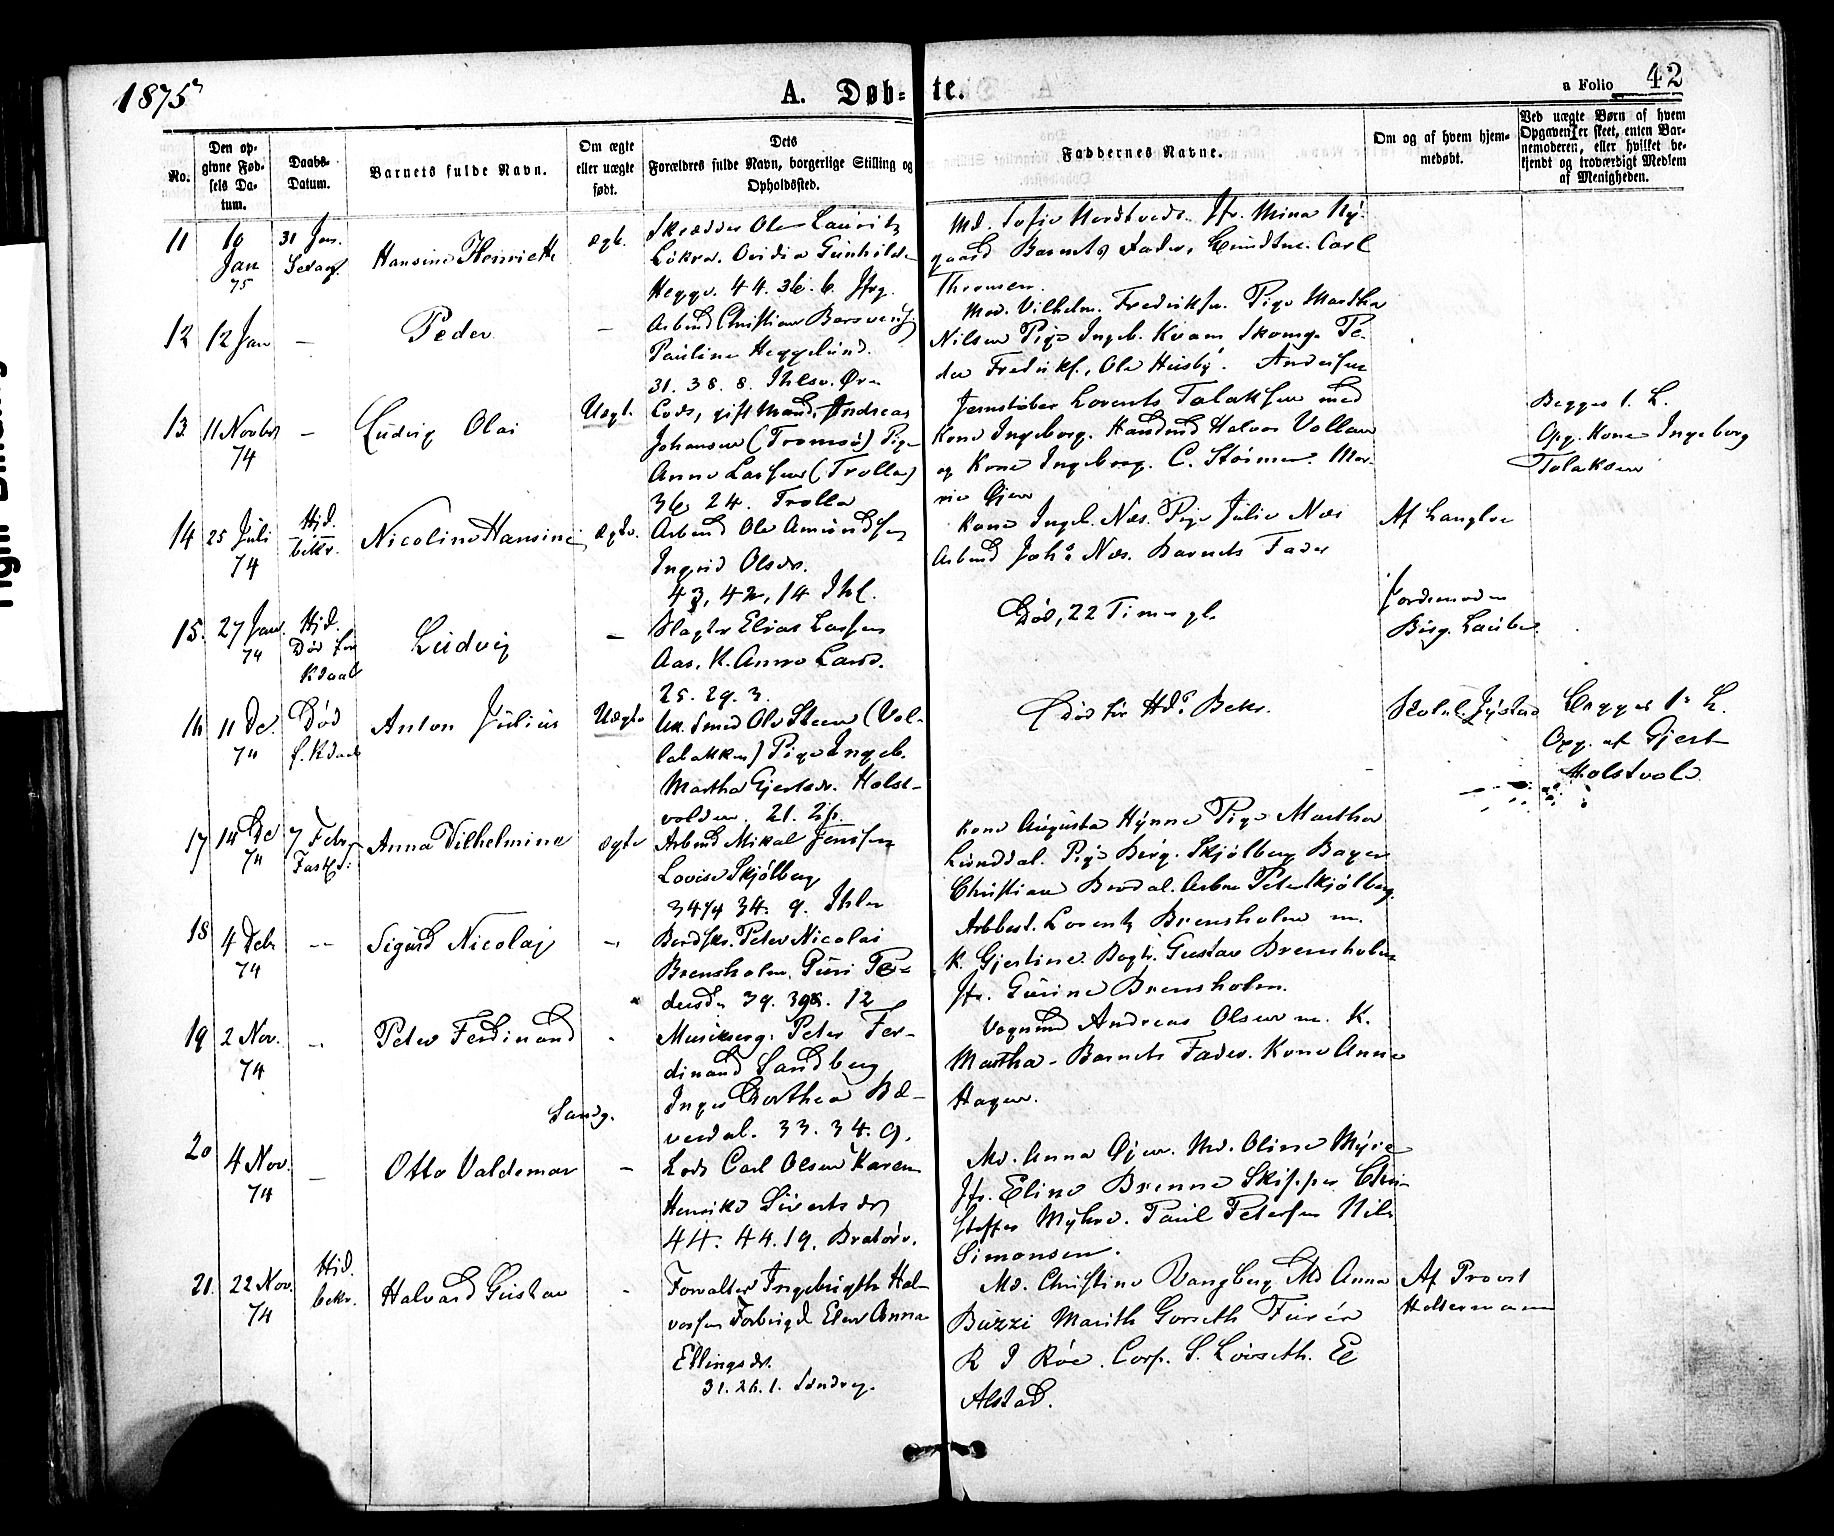 1875
A. Døb-te.
a Folio 42
No.
Den op-
givne Fød-
sels Da-
tum.
Daabs-
Datum.
Barnets fulde Navn.
Om ægte
eller uægte
født.
Dets
Forældres fulde Navn, borgerlige Stilling og
Opholdssted.
Faddernes Navne.
Om og af hvem hjem-
medøbt.
Ved uægte Børn af hvem
Opgaven er skeet, enten Bar-
nemoderen, eller hvilket be-
kjendt og troværdigt Medlem
af Menigheden.
11
10
Jan
75
31 Jan.
Hansine Henriette
ægt.
Skrædder Ole Lauritz
Gunhild
44. 36. 6.
Md. Sofie Jfr. Mina Ny-
gaard Barnets Fader, Carl
12
12 Jan
–
Peder
–
Arbmd Christian
Pauline Heggelund.
31. 38. 8. Ihlsv. Øre
Mad. Vilhelm. Fredriksen. Pige Martha
Nilsen Pige Ingeb. Kvam Skomg. Pe-
der Fredriks., Ole Husby. Andersen
13
11 Novbr
74
–
Ludvig Olai
Uægt.
Lods, gift Mand, Andreas
Johansen (Tromsø) Pige
Anne Larsen (Trolla)
36 24. Trolla
Jernstøber Lorents Tolaksen med
Kone Ingeborg. Halvor Vollan
og Kone Ingeborg. C. Støimer. Ma-
rie Øjen
Begges 1. L.
Opg. Kone Ingeborg
Tolaksen
14
25 Juli
74
Hjd.
bekr.
Nicoline Hansine
ægte.
Arbmd Ole Amundsen
Ingrid Olsdr.
43, 42, 14 Ihl.
Kone Ingeb. Næs. Pige Julie Næs
Arbmd Joh. Næs. Barnets Fader
Af Langloe
15.
27 Jan.
74
Hjd.
Død før
Kdaab
Ludvig
–
Slagter Elias Larsen
Aas. K. Anne Larsd.
25. 29. 3.
Død, 22 Timer gl.
Jordemoder
16
11 De.
74
Død
f. Kdaab
Anton Julius
Uægte
Uk. Smed Ole Steen (Vol-
labakken) Pige Ingeb.
Martha Gjertsdr. Holst-
volden. 21. 25.
Død før Hd. Bekr.
Begges 1. L.
Opg. af Gjert
Holstvold
17
14 De
74
7 Febr
Fast. S.
Anna Vilhelmine
ægte
Arbmd Mikal Jenssen
Lovise Skjølberg
34 34. 9. Ihlen
Kone Augusta Hynne Pige Martha
Lunddal. Pige Berg. Skjølberg Bager
Christian Peter Skjølberg.
18
4 Debr
74
–
Sigurd Nicolaj
–
Peter Nicolai
Brensholm. Guri Pe-
dersdr. 39. 39. 12
Arbbest. Lorentz Brensholm m.
K. Gjertine. Bogtr. Gustav Brensholm
Jfr. Gurine Brensholm.
19
2 Nov.
74
–
Peter Ferdinand
Sandg.
Peter Fer-
dinand Sandberg
Inger Dorthea Bæ-
verdal. 33. 34. 9.
Vognmd Andreas Olsen m. K.
Martha – Barnets Fader. Kone Anne
Hagen.
20
4 Nov.
74
–
Otto Valdemar
–
Lods Carl Olsen Karen
Henrike Sivertsdr
44. 44. 19. Bratørv.
Md. Anna Øjen. Md. Oline Myhre
Jfr. Eline Brenne Skipper Chri-
stoffer Myhre. Paul Petersen Nils
Simonsen.
21.
22 Nov.
74
Hjd.
bekr.
Halvard Gustav
Forvalter Ingebrigth Hal-
vorsen Forbrigd Elen Anna
Ellingsdr.
31. 26. 1. Sandvg.
Md. Christine Vangberg Md Anna
Buzzi Marith Gorseth Furér
R I Röe. Corp. S. Löiseth. E
Alstad.
Af Provst